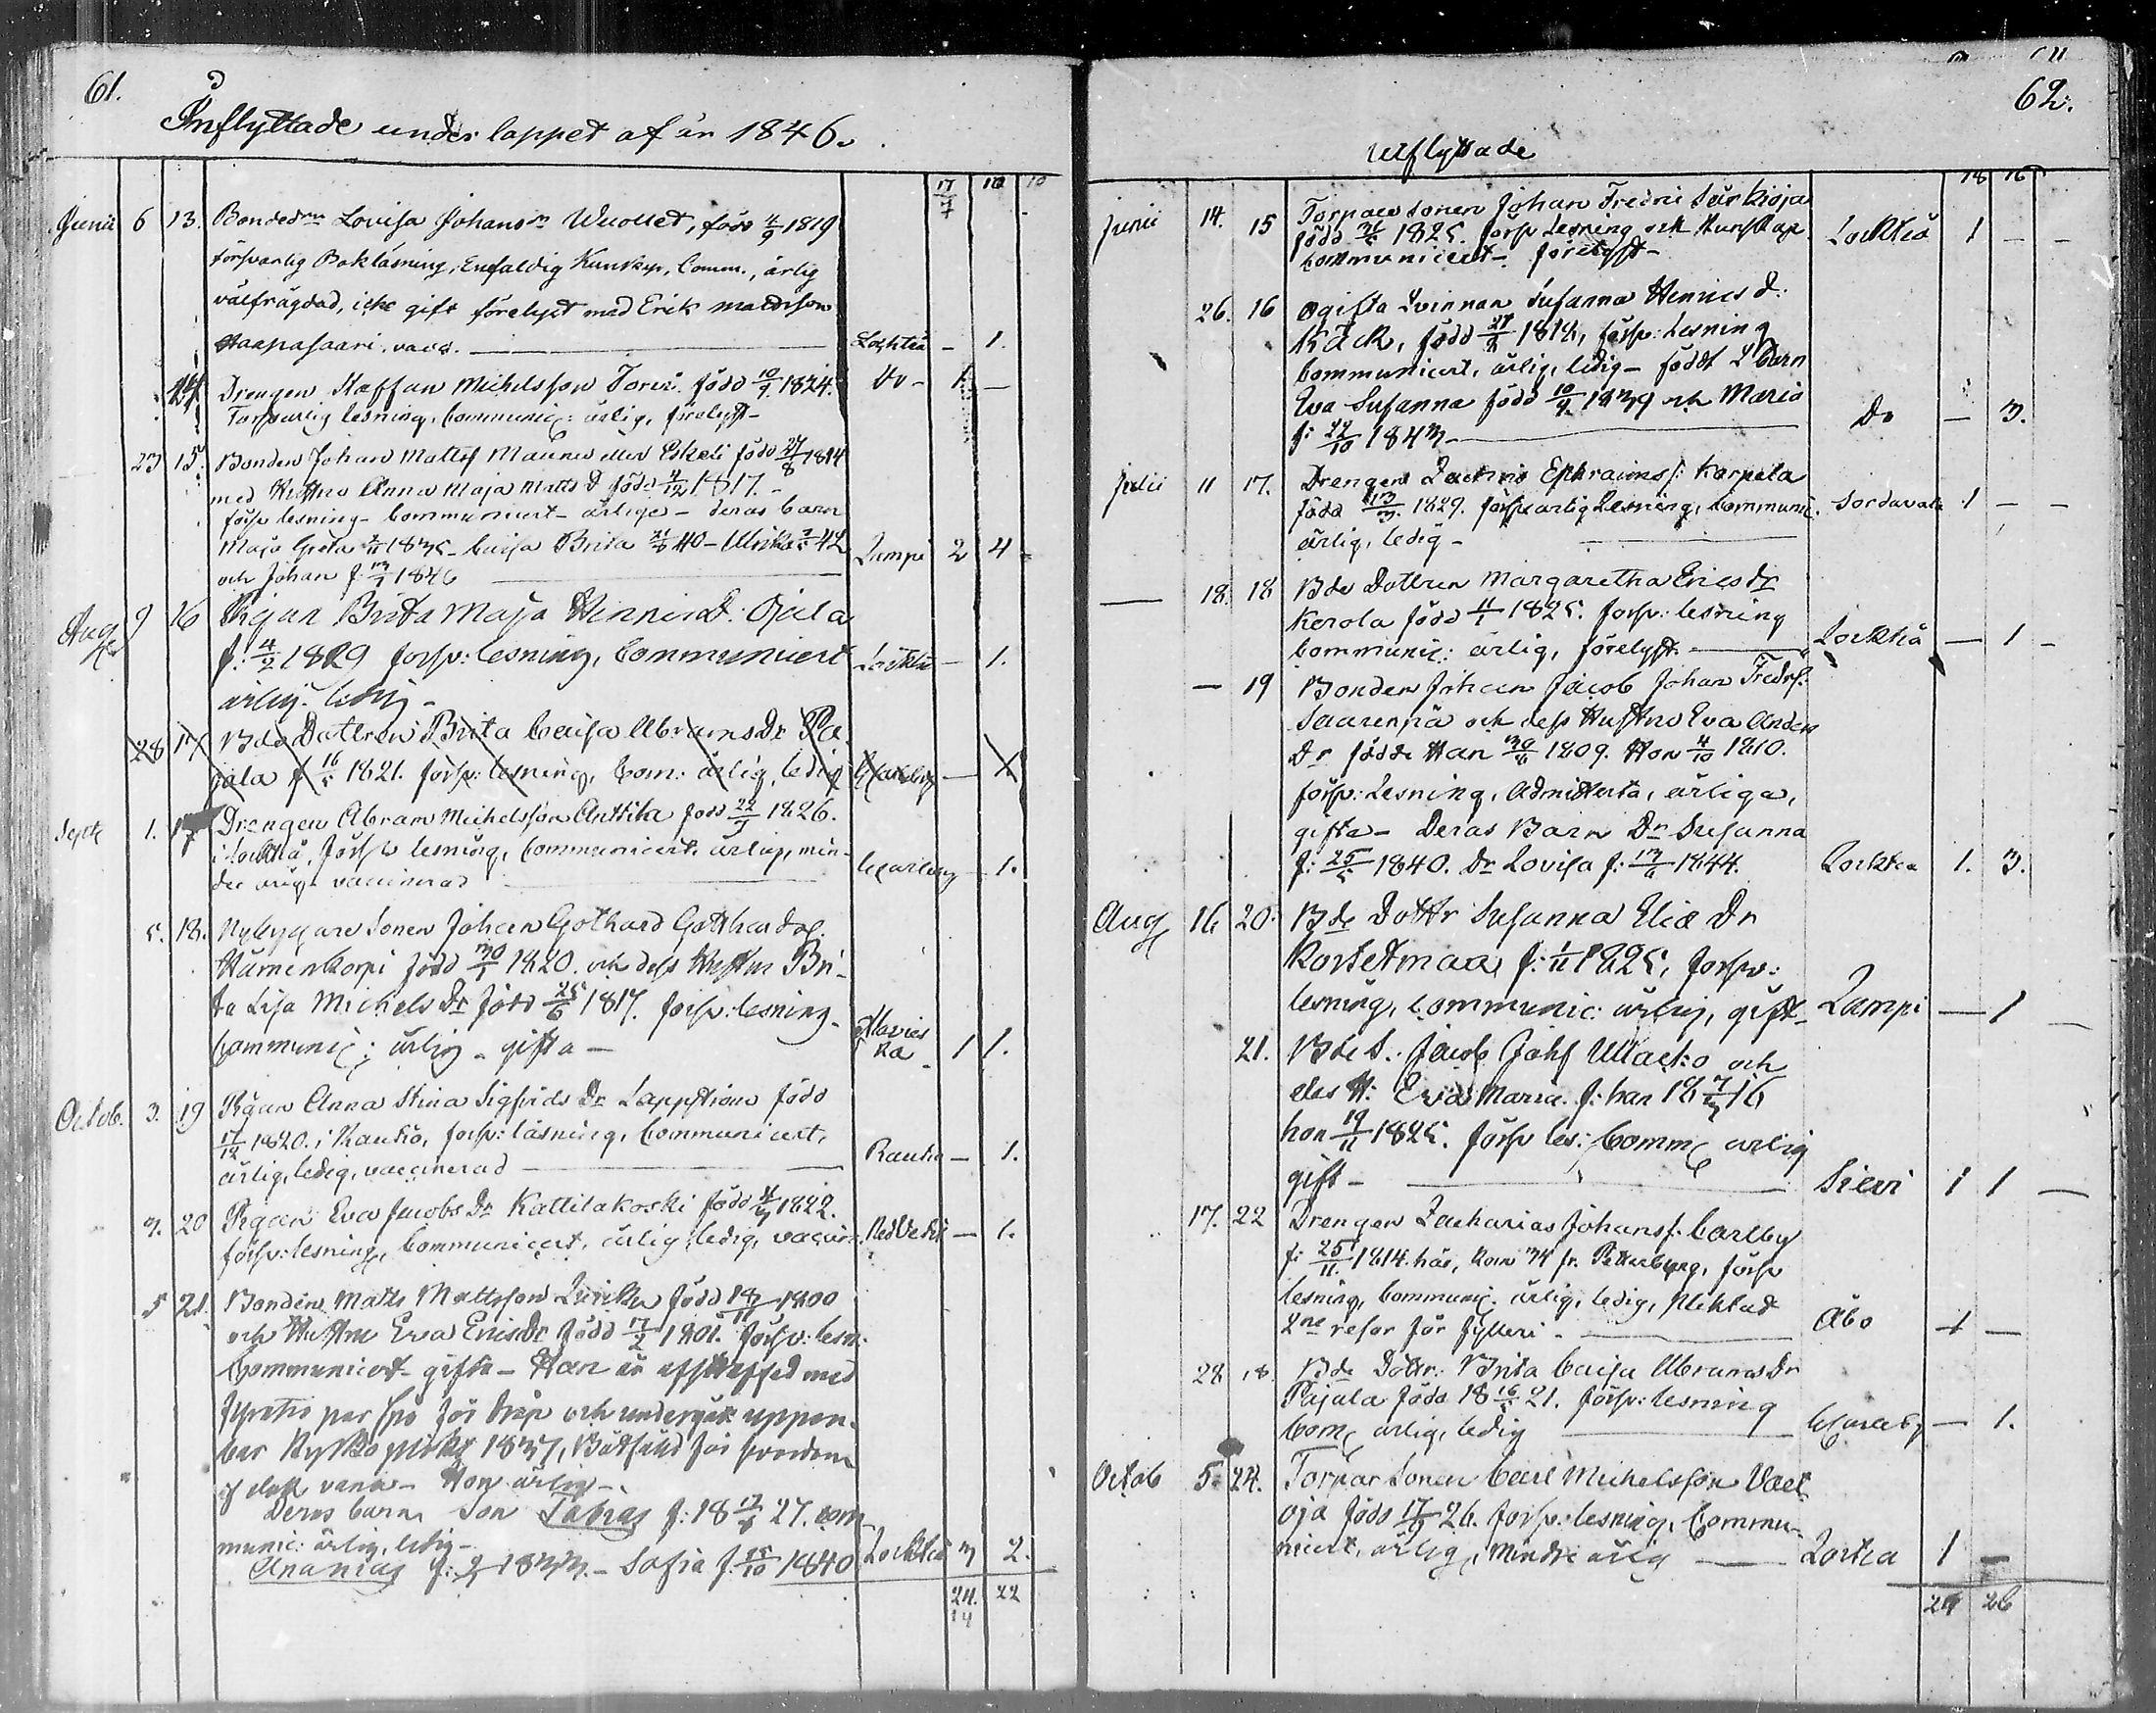 61.
Inflyttade under loppet af år 1846.
17/7 10 10
Junii 6 13. Bondedrn Lovisa Johansdr Wuollet, född 4/9 1819
försvarlig Bokläsning, Enfaldig Kunskap, Comm., ärlig
välfrägdad, icke gift förelyst med Erik Mattsson
Haapasaari. vacc. Lochteå - 1.
14 Drengen Staffan Michelsson född 10/9 1824. do - 1 -
Försvarlig lesning, Communic: ärlig, förelyst -
23 15. Bonden Johan Matts eller Eskeli född 27/8 1814
med Hustru Anna Maja Matts D född 4/12 1817. -
försv lesning - Communicert - ärliga - deras barn
Maja Greta 1835 - Caisa Brita 40 - Ulrika 42 Lampi 2 4
och Johan f. 13/1 1846
Aug 9 16 Pigan Brita Maja Henrics D. Ojala
f: 4/2 1829 försv: lesning, Communicert Locktå - 1.
ärlig. ledig -
28 17 Bde Dottren Brita Caisa Abrams Dr Pa-
jala f 16/5 1821. försv: lesning, Com: ärlig, ledig GCarleby - 1
Sept 1. 17 Drengen Abram Michelsson Anttila född 22/3 1826.
i Locktå, försv lesning, Communicert. ärlig, min-
deårig vaccinerad GCarleby - 1.
5. 18. Nybyggare Sonen Johan Gothard Gotthards.
Hämenkorpi född 30/1 1820. och dess Hustru Bri-
ta Lisa Michels Dr född 25/6 1817. försv: lesning -
Communic: ärlig - gifta - 1 1.
Octob. 3. 19 Pigan Anna Stina Sigfrids Dr född
17/12 1820. i Kauhio, försv: läsning, Communicert,
ärlig, ledig, vaccinerad - 1.
3. 20 Pigan Eva Jacobs Dr Kattilakoski född 1822.
försv: lesning, Communicert, ärlig, ledig, vaccin. Nedvetil - 1.
5 21. Bonden Matts Mattsson född 18/11 1800
och Hustru Eva Erics Dr född 17/2 1801. försv: lesn:
Communicert - gifta - Han är afstraffad med
par spö för och undergått uppen-
bar Kyrko plikt 1837,
Hon ärlig -
Deras barn Son Tobias f: 18 12/5 27. com-
munic: ärlig, ledig -
Ananias f: 1833 - Sofia f. 15/10 1840 Lockteå 3 2.
24. 22
14
62.
Utflyttade
18 16
Junii 14. 15 Torpare sonen Johan Fredric
född 31/5 1825. försv Lesning och Kunskap Lockteå 1 - -
Communicert - förelyst -
26. 16 Ogifta Qvinnan Susanna Henrics d:
Käck, född 1812, försv: Lesning
Communicert, ärlig, ledig - födt 2 barn
Eva Susanna född 10/9 1839 och Maria Do - 3.
f: 22/10 1843 -
Julii 11 17. Drengen Zachris Ephraims s: Karpela
född 13/3 1829. försvarlig Lesning, Communic. Sordavala 1 - -
ärlig, ledig -
18. 18 Bde Dottren Margaretha Erics dr
Kerola född 11/1 1825. försv: lesning
Communic: ärlig, förelyst. - Locktå - 1 -
- 19 Bonden Johan Jacob Johan Freds:
Saarenpä och dess Hustru Eva Anders
Dr födde Han 30/6 1809. Hon 4/10 1810.
försv: Lesning, Admitterta, ärliga,
gifta - Deras Barn Dr Susanna
f: 25/5 1840. Dr Lovisa f: 13/6 1844. Locktea 1. 3.
Aug 16 20. Bde Dottr Susanna Eliæ Dr
Kortetmaa f: 1/11 1825, försv:
lesning, communic: ärlig, gift - Lampi - 1 -
21. Bde S: Jacob Johs Ullacko och
des H: Eva Maria f: han 18 7/3 16
hon 19/11 1825. försv les: Comm ärlig
gift - Sievi 1 1 -
17. 22 Drengen Zacharias Johans s: Carlby
f: 25/11 1814 här, kom 34 fr. Petersburg, försv
lesning, Communic. ärlig, ledig, pliktad
2ne resor för fylleri - Åbo 1 -
28 Bde Dottr: Brita Caisa Abrams Dr
Pajala född 18 16/5 21. försv: lesning
Com ärlig, ledig GCarleby - 1.
Octob 5. 24. Torpar Sonen Carl Michelsson
oja född 17/9 26. försv: lesning, Commu-
nicert, ärlig, minderårig - Loctea 1 -
24 26